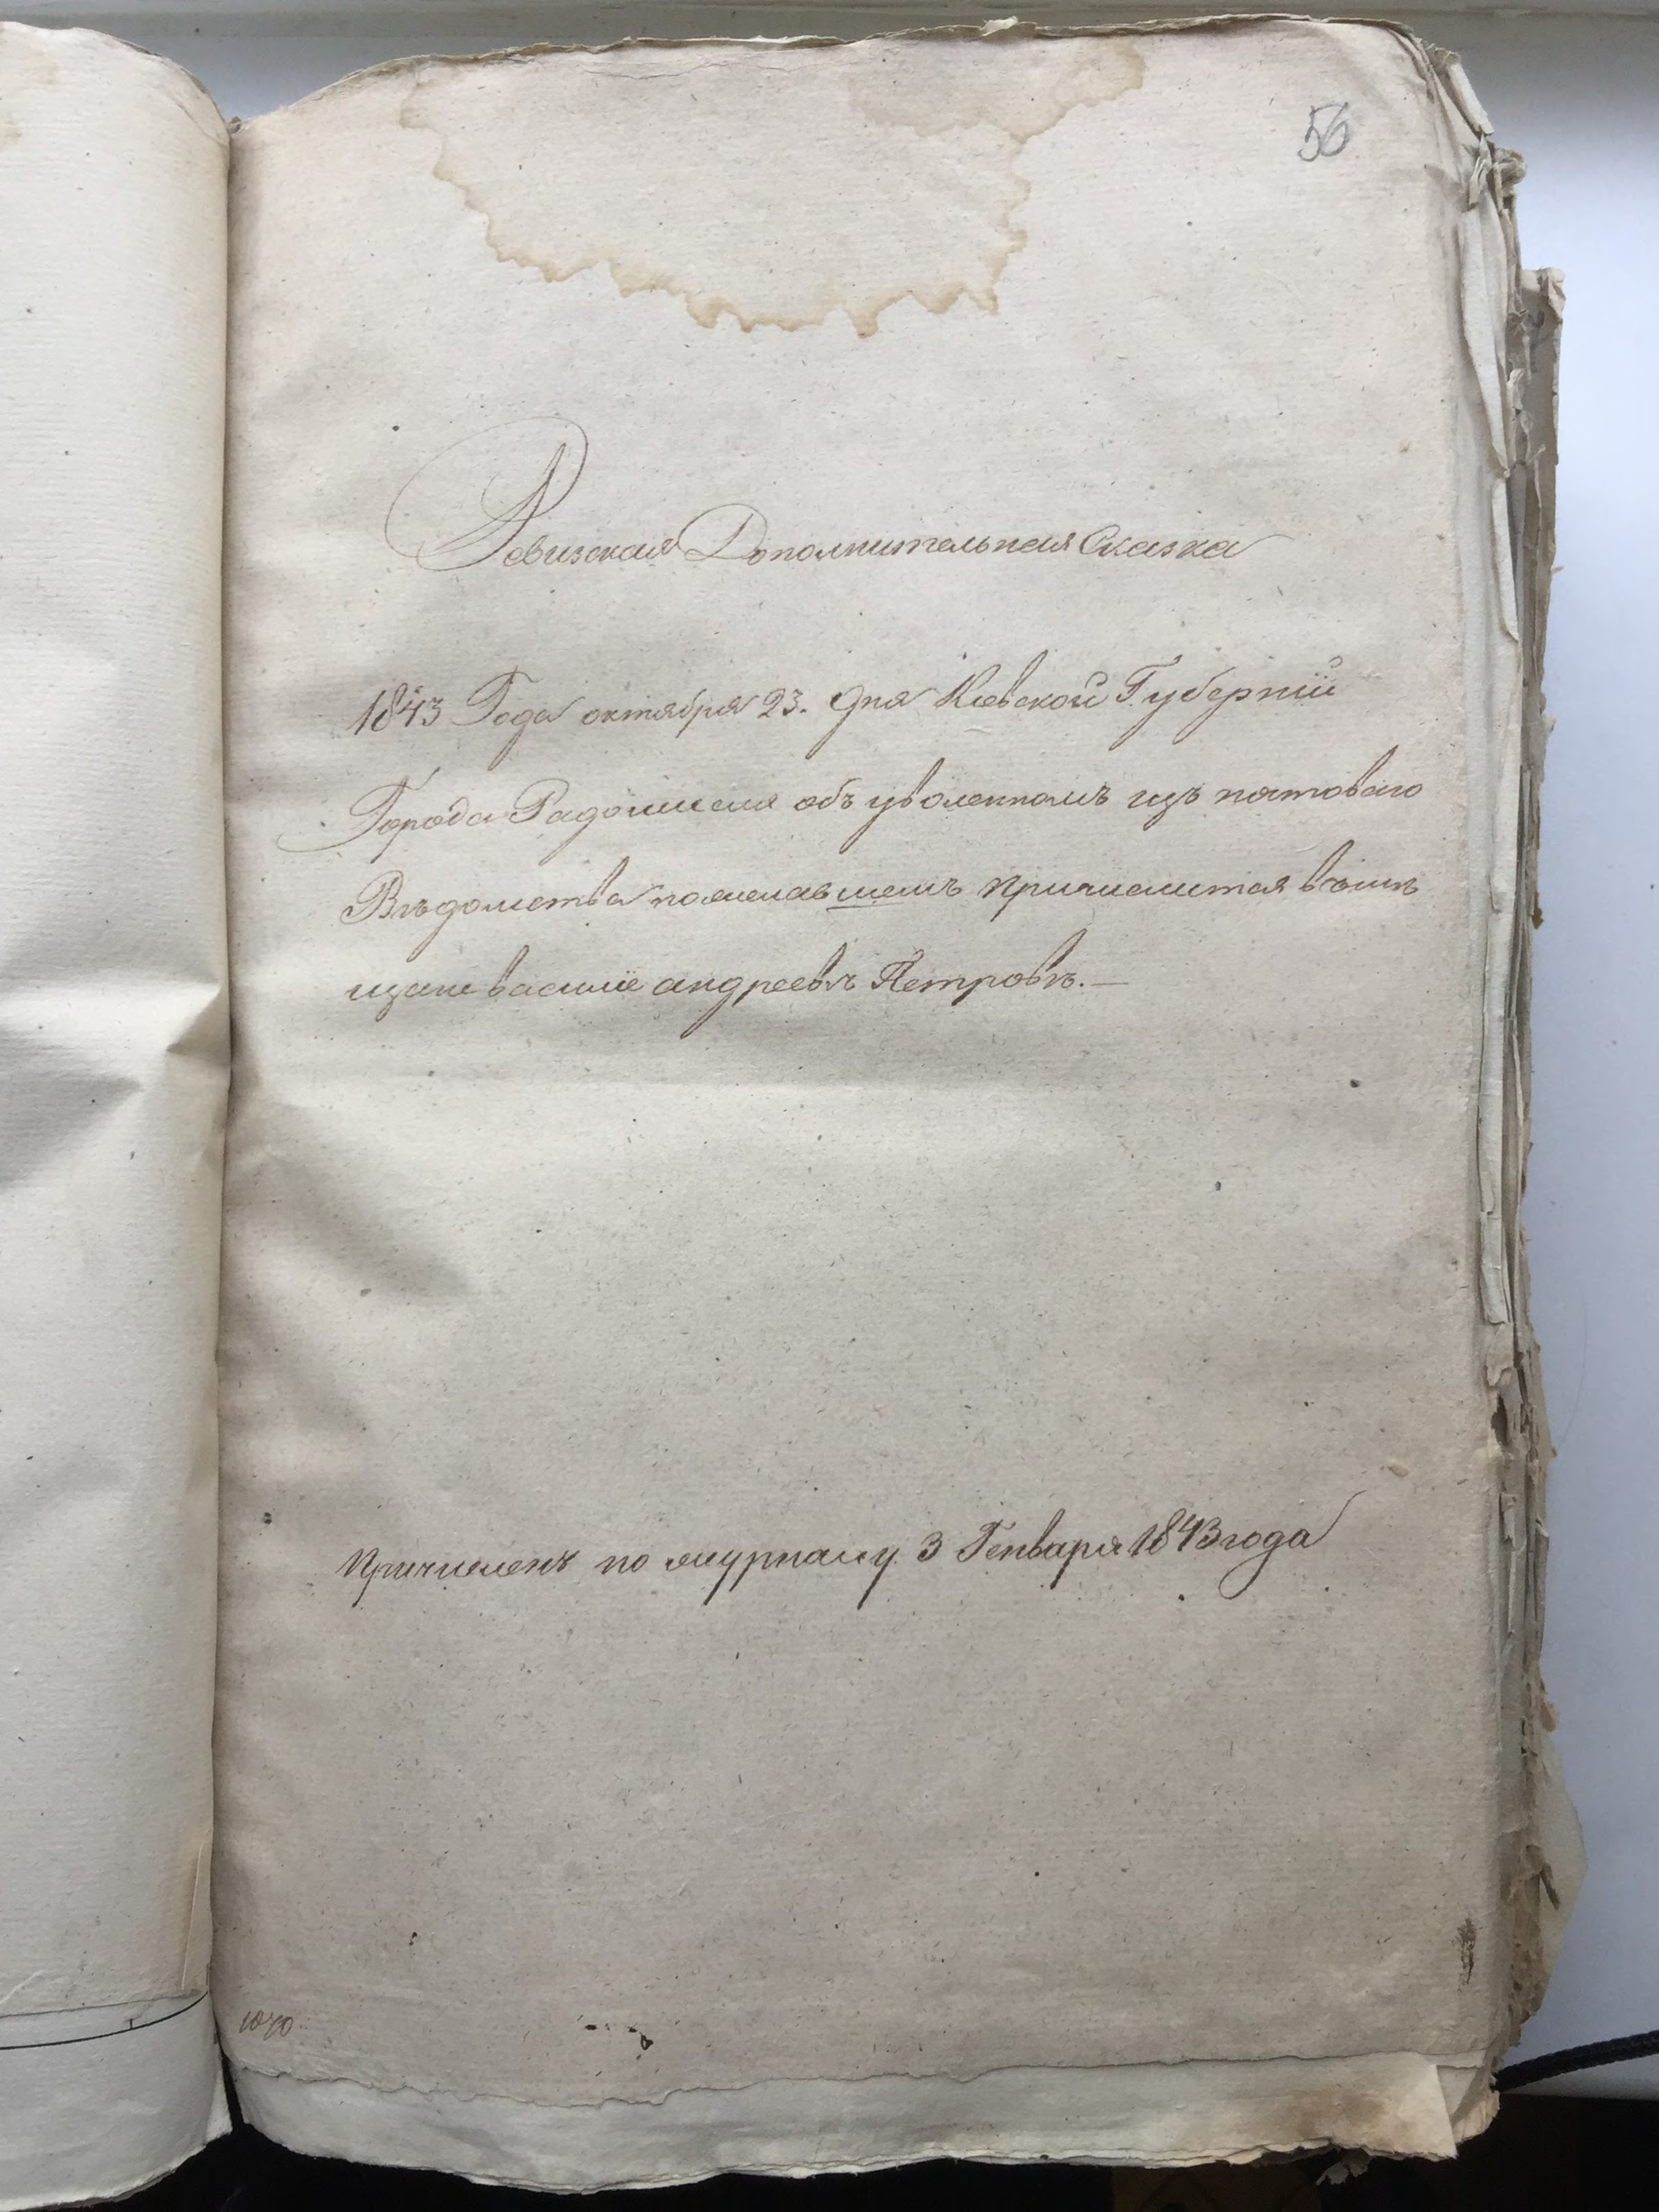 56
Ревизская Дополнительная Сказка
1843 Года октября 23. дня Киевской Губернiи
Города Радомысля объ уволенномъ изъ почтоваго
Вѣдомства пожелавшемъ причислится вчѣмъ
щане василiе андреевѣ Петровѣ.—
Причисленъ по журналу 3 Генваря 1843 года